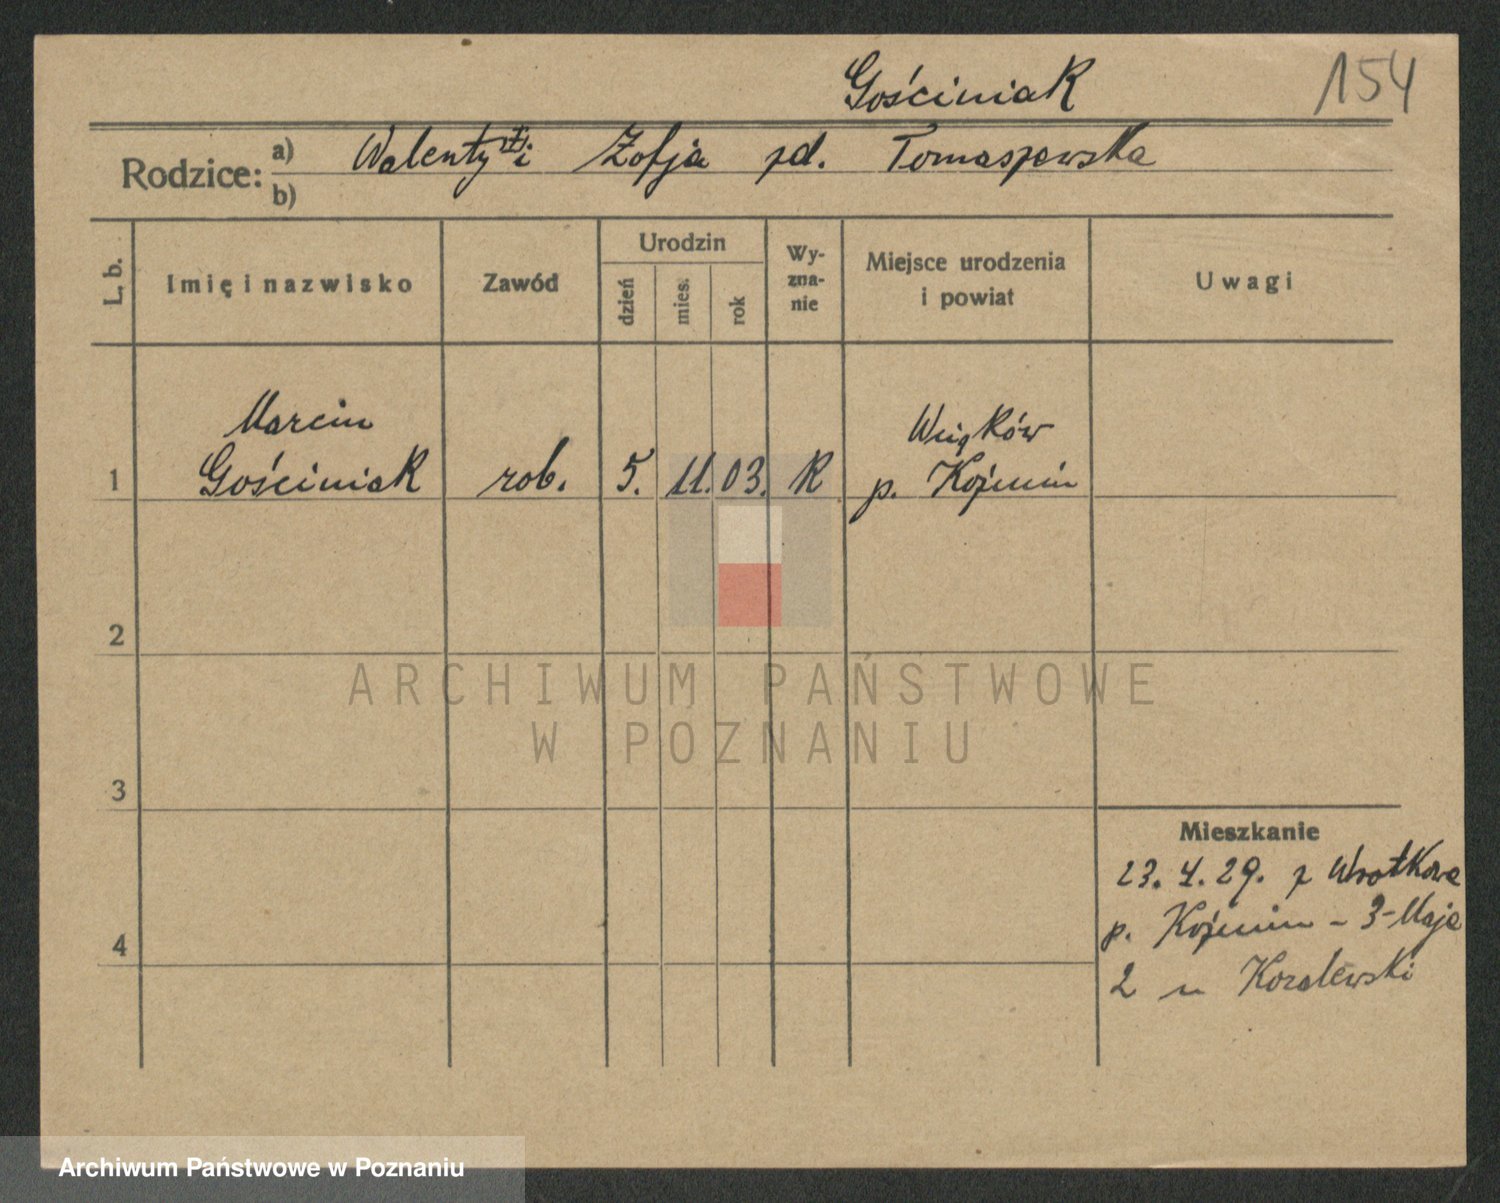 Gościniak 154
Rodzice: a) Walenty i Zofja zd. Tomaszewska
b)
L. b. Imię i nazwisko Zawód Urodzin dzień mies. rok Wy-zna-nie Miejsce urodzenia i powiat Uwagi
Marcin Wciąków
1 Gościniak rob. 5. 11. 03. R p. Koźmin
2
ARCHIWUM PAŃSTWOWE
W POZNANIU
3
Mieszkanie
23. 4. 29. z Wrotkowa
p. Koźmin - 3-Maja
4
2 u Koralewski
Archiwum Państwowe w Poznaniu